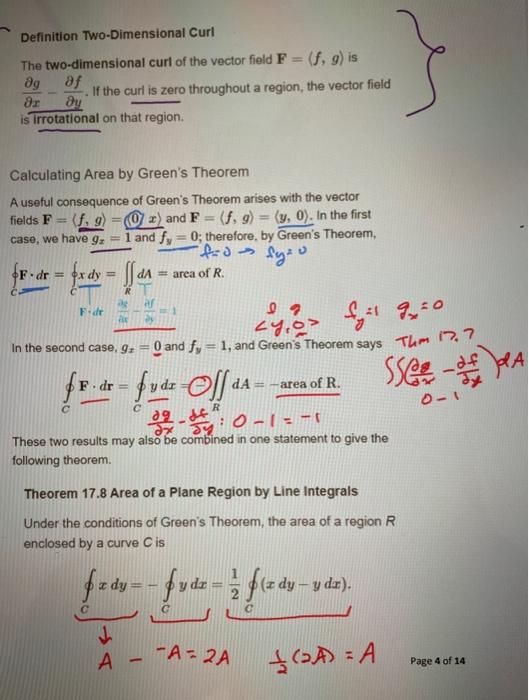 Definition Two-Dimensional Curl
The two-dimensional curl of the vector field F = ⟨f, g⟩ is
∂g/∂x − ∂f/∂y. If the curl is zero throughout a region, the vector field
is irrotational on that region.
Calculating Area by Green's Theorem
A useful consequence of Green's Theorem arises with the vector
fields F = ⟨f, g⟩ = ⟨0, x⟩ and F = ⟨f, g⟩ = ⟨y, 0⟩. In the first
case, we have gₓ = 1 and f_y = 0; therefore, by Green's Theorem,
f=0 → f_y=0
∮_C F · dr = ∮_C x dy = ∬_R dA = area of R.
F·dr ∂g/∂x − ∂f/∂y = 1
f g
<y,0> f_y=1 gₓ=0
In the second case, gₓ = 0 and f_y = 1, and Green's Theorem says
Thm 17.7
∬(∂g/∂x − ∂f/∂y)dA
0 − 1
∮_C F · dr = ∮_C y dx = −∬_R dA = −area of R.
∂g/∂x − ∂f/∂y : 0 − 1 = −1
These two results may also be combined in one statement to give the
following theorem.
Theorem 17.8 Area of a Plane Region by Line Integrals
Under the conditions of Green's Theorem, the area of a region R
enclosed by a curve C is
∮_C x dy = − ∮_C y dx = 1/2 ∮_C (x dy − y dx).
A − −A = 2A 1/2 (2A) = A
Page 4 of 14